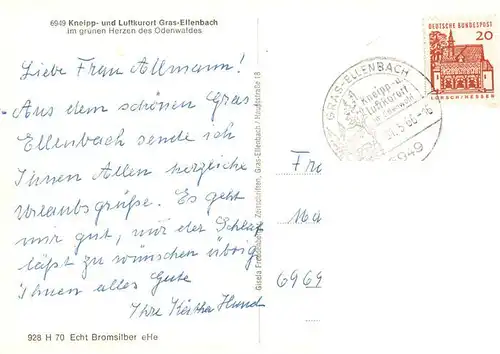 6949 Kneipp- und Luftkurort Gras-Ellenbach
im grünen Herzen des Odenwaldes
Liebe Frau Allmann!
Aus dem schönen Gras
Ellenbach sende ich
Ihnen Allen herzliche
Urlaubsgrüße. Es geht
mir gut, nur der Schlaf
läßt zu wünschen übrig
Ihnen alles Gute
Ihre Käthe Hund
928 H 70 Echt Bromsilber eHe
Gras-Ellenbach / Hauptstraße 18
GRAS-ELLENBACH
Kneipp-u.
Luftkurort
i. Odenwald
6949
DEUTSCHE BUNDESPOST
20
LORSCH/HESSEN
Fr
Ma
6969